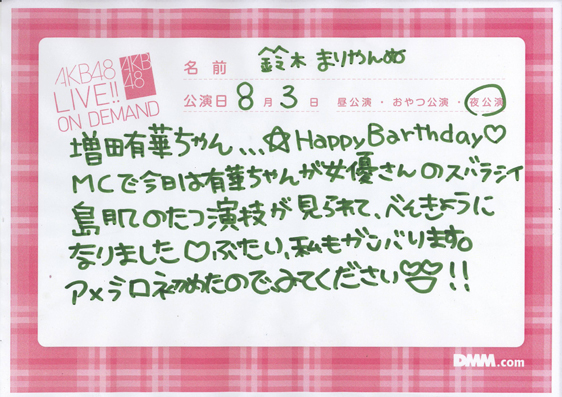 AKB48
LIVE!!
ON DEMAND
AKB
48
名前 鈴木 まりやんぬ
公演日 8 月 3 日 昼公演・おやつ公演・夜公演
増田有華ちゃん、、、☆HappyBarthday♡
MCで今日は有華ちゃんが女優さんのスバラシイ
鳥肌のたつ演技が見られて、べんきょうに
なりました♡ぶたい、私もガンバります。
アメブロ初めたので、みてください!!
DMM.com